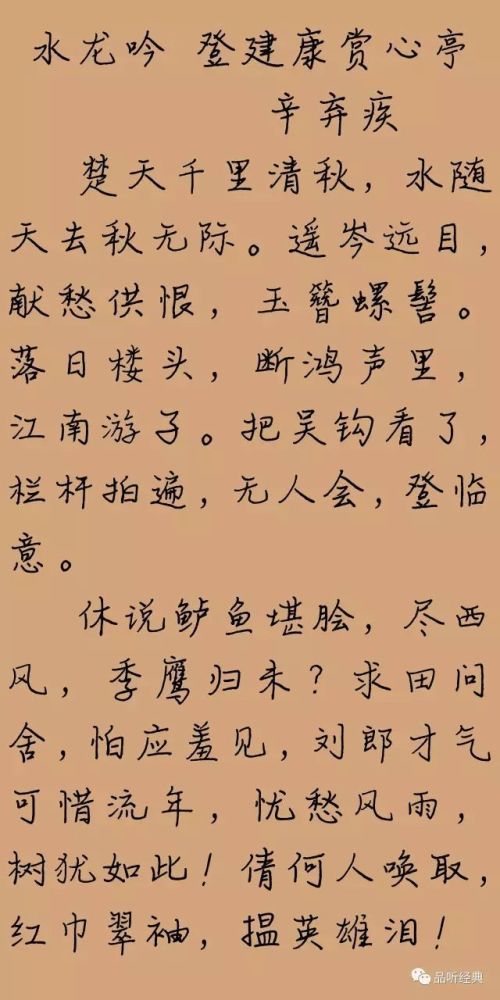 水龙吟 登建康赏心亭
辛弃疾
楚天千里清秋，水随
天去秋无际。遥岑远目，
献愁供恨，玉簪螺髻。
落日楼头，断鸿声里，
江南游子。把吴钩看了，
栏杆拍遍，无人会，登临
意。
休说鲈鱼堪脍，尽西
风，季鹰归未？求田问
舍，怕应羞见，刘郎才气
可惜流年，忧愁风雨，
树犹如此！倩何人唤取，
红巾翠袖，揾英雄泪！
品听经典